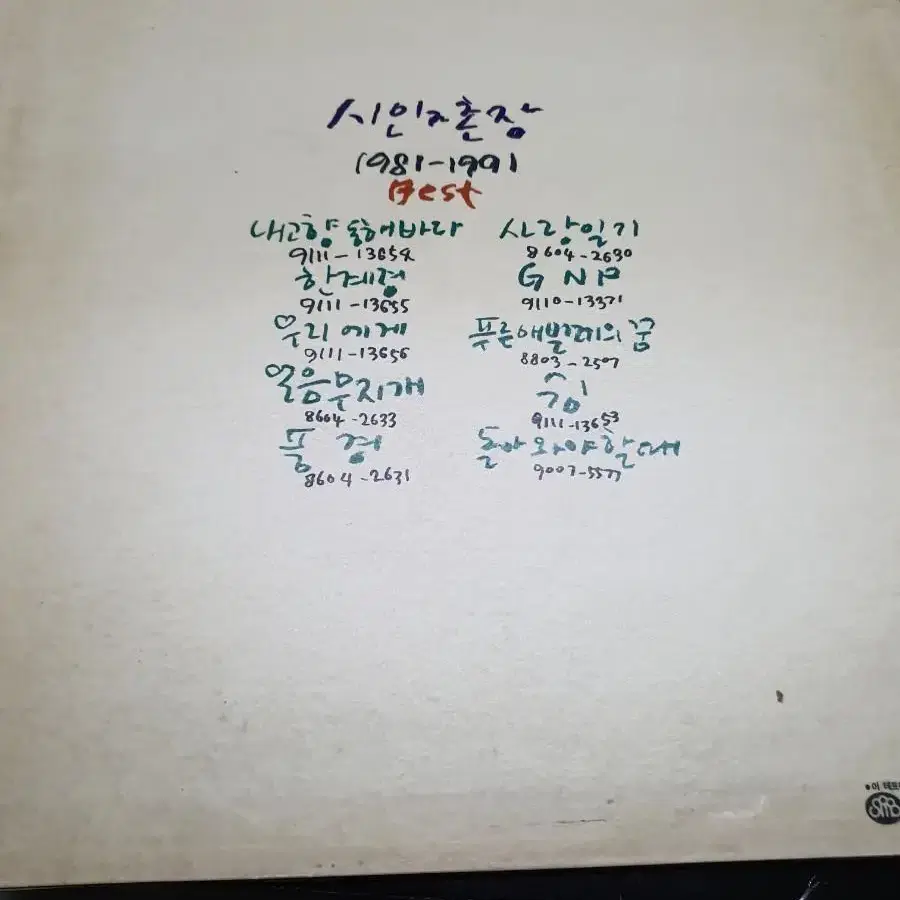 시인과촌장
1981-1991
Best
내고향 동해바다
9111-13654
한계령
9111-13655
우리에게
9111-13656
얼음무지개
8604-2633
풍경
8604-2631
사랑일기
8604-2630
G N P
9110-13371
푸른애벌레의 꿈
8803-2507
숲
9111-13653
돌아와야할때
9007-5577
이 테트
SRB